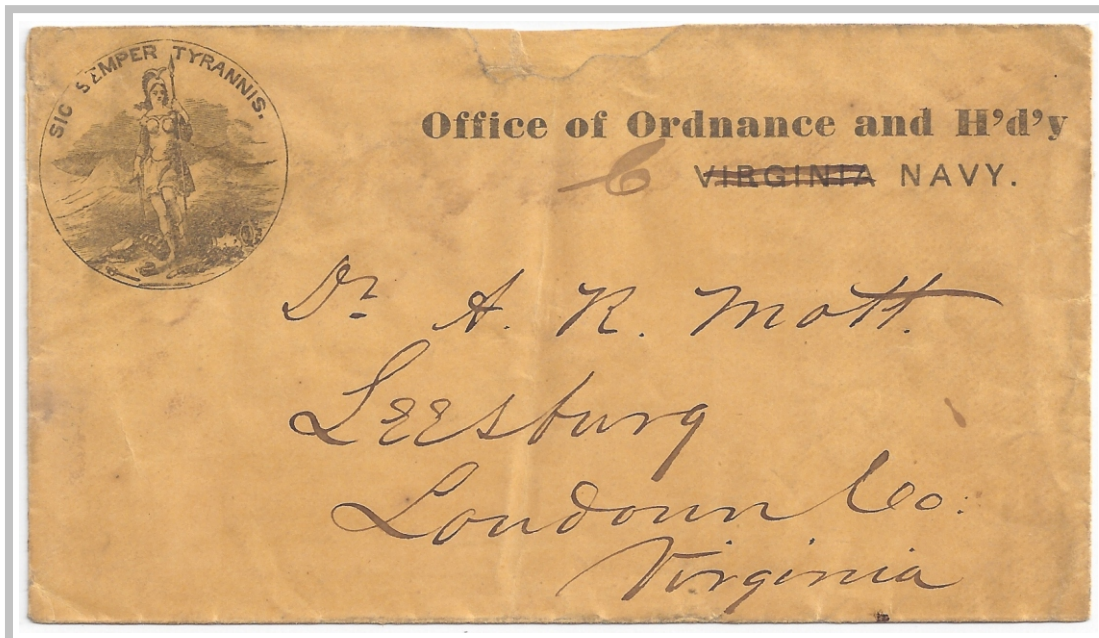 SIC SEMPER TYRANNIS.
Office of Ordnance and H'd'y
6 VIRGINIA NAVY.
Dr A. R. Mott.
Leesburg
Loudoun Co.
Virginia